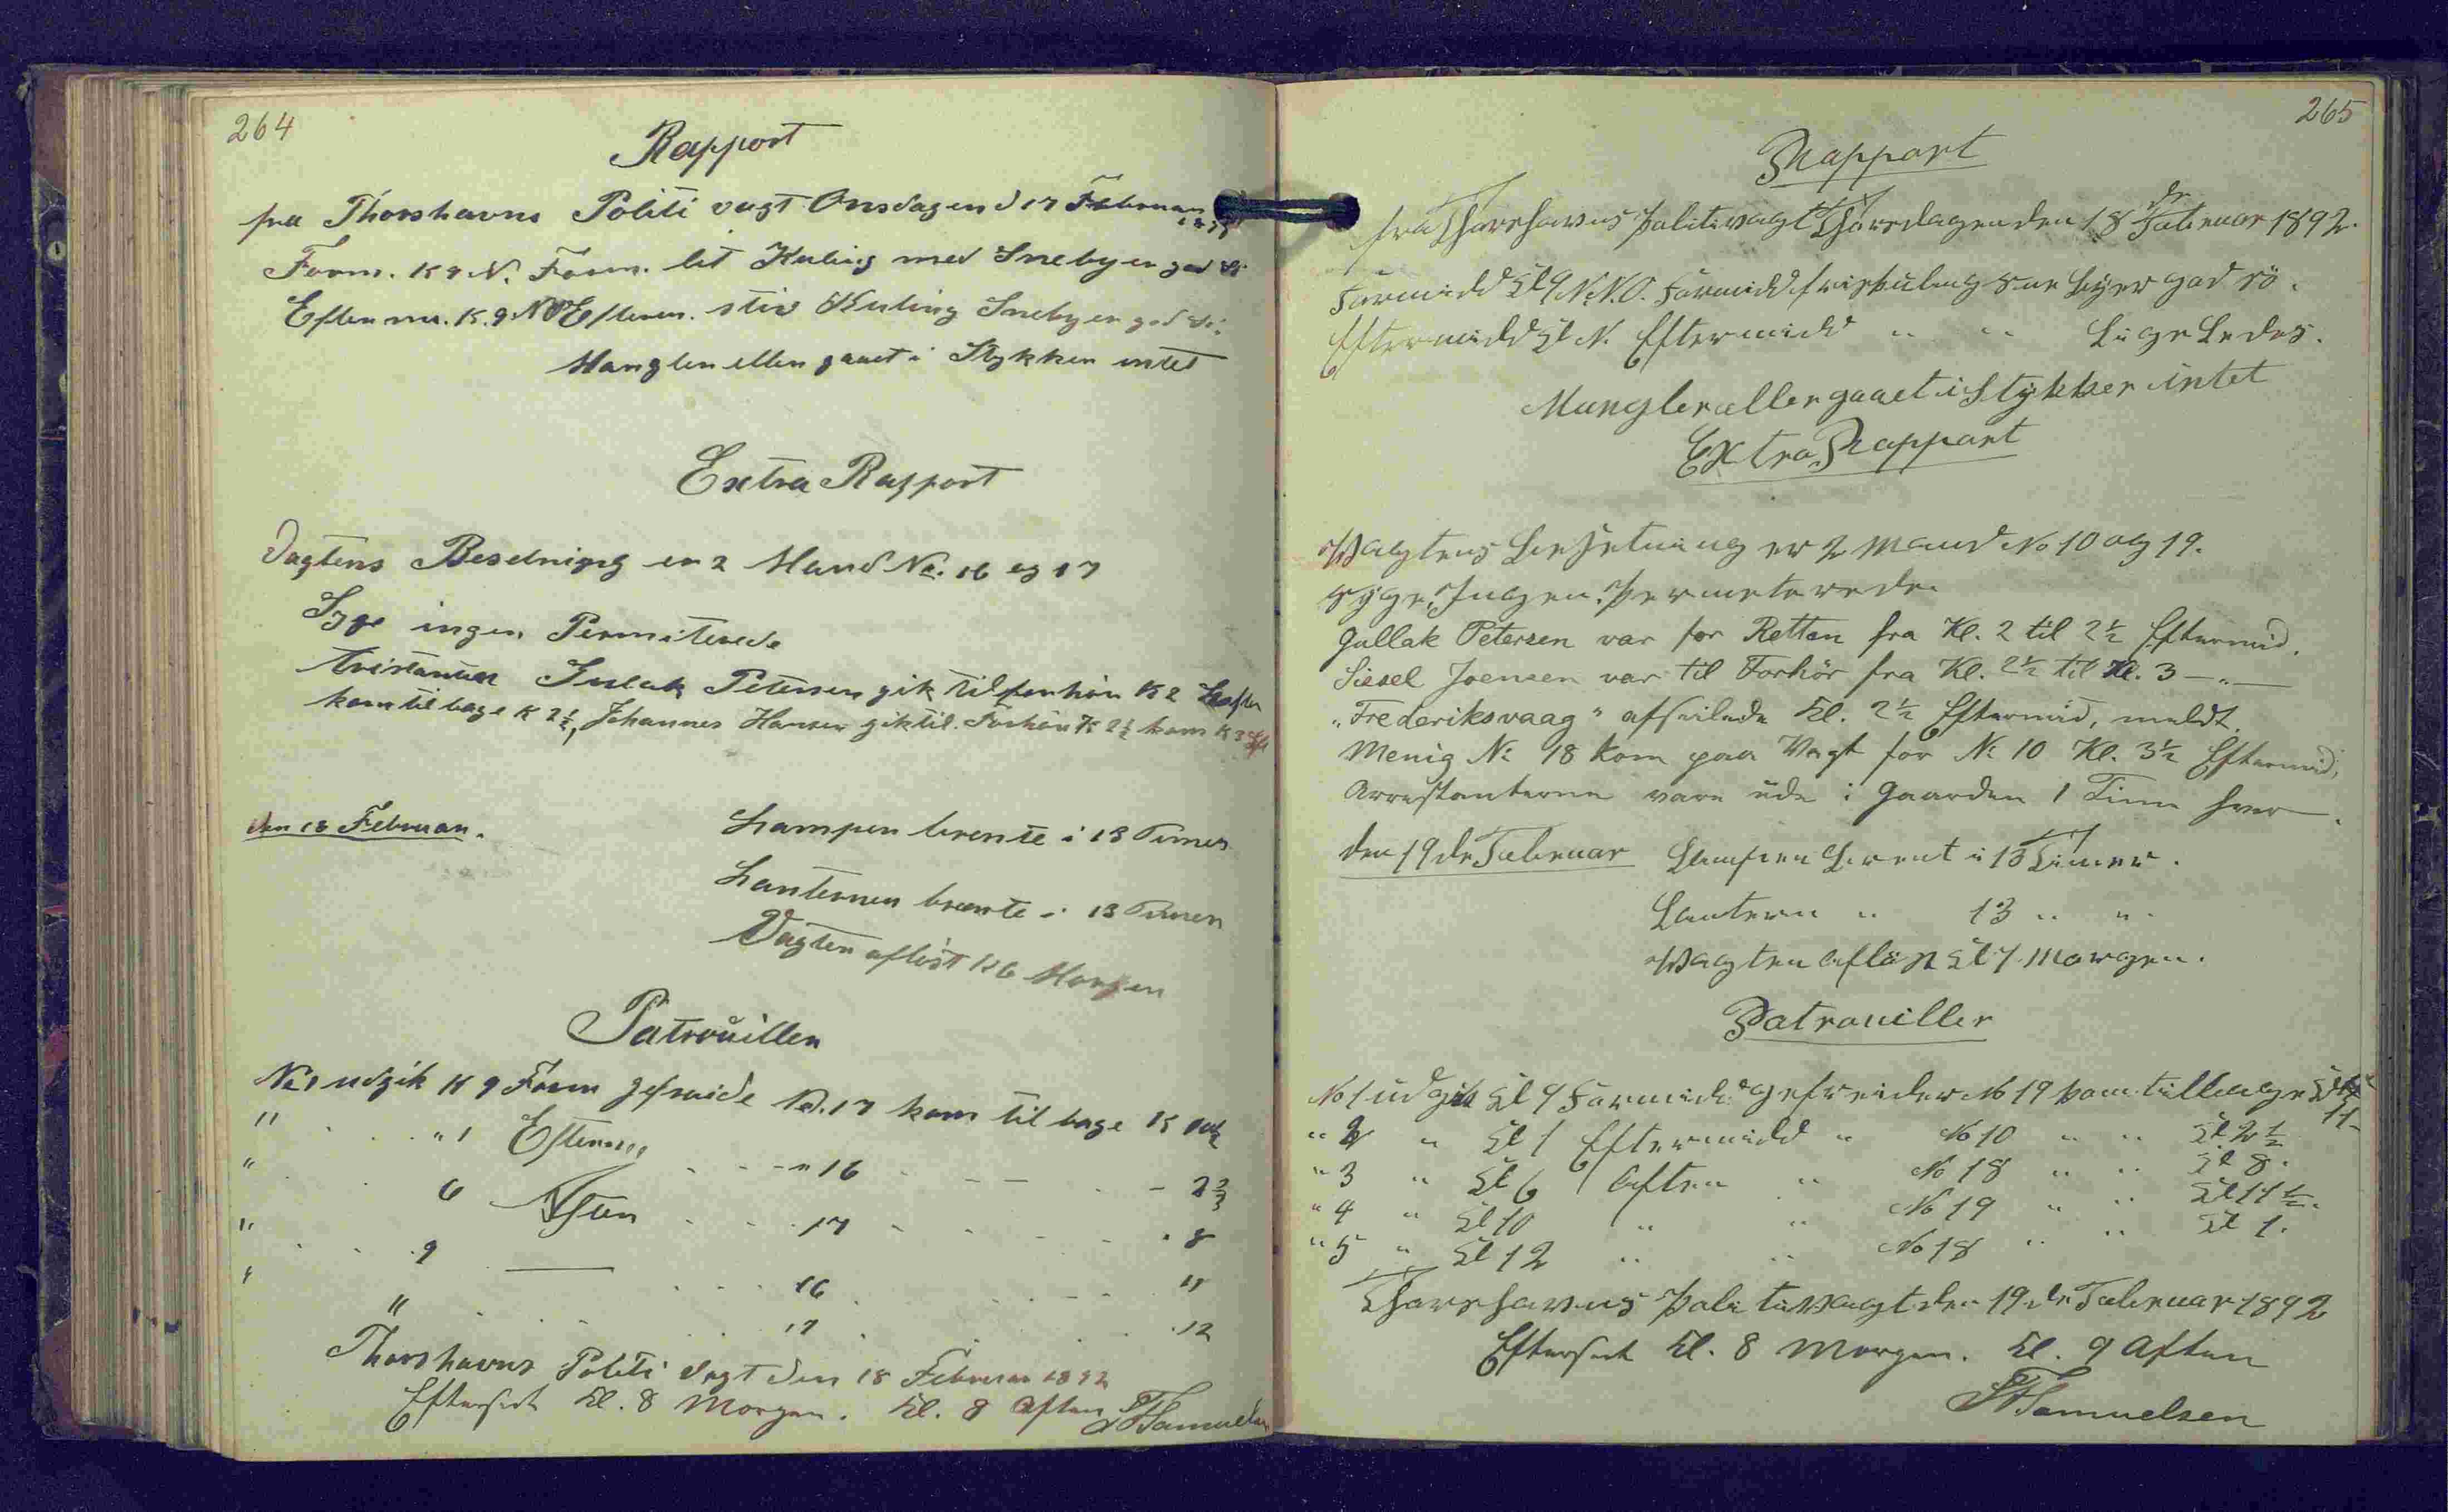 264
Rapport
fra Thorshavns Politi vagt Onsdagen d 17 Februar
Form. K 9 N. Form. let Kuling med Snebyer god
Efterm. K. 9 NO Efterm. stiv Kuling Snebyer god
Mangler eller gaaet i Stykker intet
Extra Rapport
Vagtens Besetning er 2 Mand No. 16 og 17
Syge ingen Permiterede
Gulak Petersen gik til forhör K 2
kom til bage K 2½, Johannes Hansen gik til Forhör K 2½ kom K 3
den 18 Februar.
Lampen brente i 13 Timer
Lanternen brente i 13 Timer
Vagten aflöst K 6 Morgen
Patrouiller
No 1 udgik K 9 Form gefreide No. 17 kom til bage K
" " 1 Efterm " 16 - - 2½
" 6 Aften 17 8
" 9 — 16 11
" 11 17 12
Thorshavns Politi Vagt den 18 Februar 1892
Efterset Kl. 8 Morgen. Kl. 8 Aften Samuelsen
265
Rapport
fra Thorshavns Politivagt Thorsdagen den 18 de Februar 1892.
Formidd Kl 9 N.N.O. Formidd frisk kuling Sne Byer god
Eftermidd Kl N. Eftermidd " " Lige Ledes.
Mangler eller gaaet i Stykker intet
Extra Rapport
Wagtens Besetning er 2 Mand No 10 og 19.
Syge, Ingen. Permeterede
Gullak Petersen var for Retten fra Kl. 2 til 2½ Eftermid.
Siesel Joensen var til Forhör fra Kl. 2½ til Kl. 3 —"—
"Frederiksvaag" afseilede Kl. 2½ Eftermid, meldt.
Menig No 18 kom paa Vagt for No 10 Kl. 3½ Eftermid,
Arrestanterne vare ude i Gaarden 1 Time hver.
den 19 de Februar Lampen Brent i 13 Timer.
Lantern " 13 " "
Wagten Aflöst Kl 7 Morgen.
Patrouiller
No 1 udgik Kl 9 Formidd gefreider No 19 kom tillbage Kl 11
" 2 " Kl 1 Eftermidd " No 10 " " Kl 2½
" 3 " Kl 6 Aften " No 18 " " Kl 8.
" 4 " Kl 10 " " No 19 " " Kl 11½.
" 5 " Kl 12 " " No 18 " " Kl 1.
Thorshavns Politivagt den 19 de Februar 1892
Efterset Kl. 8 Morgen. Kl. 9 Aften
Samuelsen